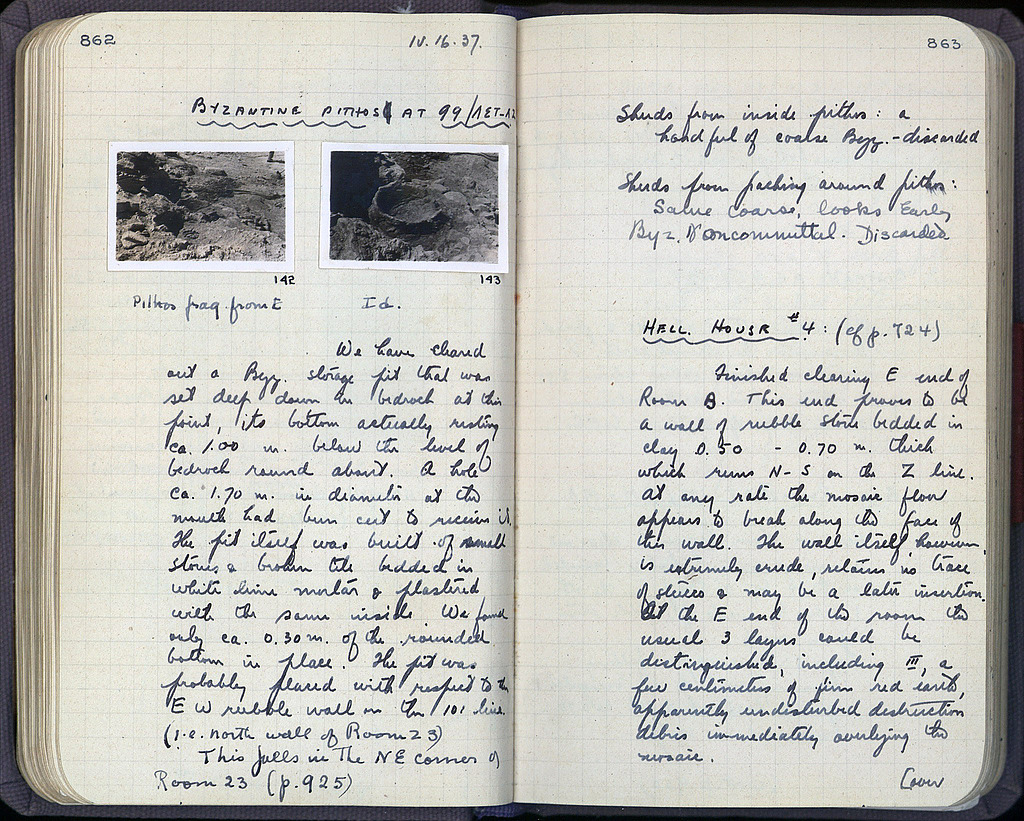 862
IV. 16. 37.
BYZANTINE PITHOS AT 99/ΛΕΤ-ΛΖ
142
143
Pithos frag. from E
Id.
We have cleared
out a Byz. storage pit that was
set deep down in bedrock at this
point, its bottom actually resting
ca. 1.00 m. below the level of
bedrock round about. A hole
ca. 1.70 m. in diameter at the
mouth had been cut to receive it.
The pit itself was built of small
stones & broken tile bedded in
white lime mortar & plastered
with the same inside. We found
only ca. 0.30 m. of the rounded
bottom in place. The pit was
probably placed with respect to the
E W rubble wall on the 101 line.
(i.e. north wall of Room 23)
This falls in the NE corner of
Room 23 (p. 925)
863
Sherds from inside pithos: a
handful of coarse Byz. - discarded
Sherds from packing around pithos:
Same coarse, looks Early
Byz. Noncommittal. Discarded
HELL. HOUSE #4: (cf p. 724)
Finished clearing E end of
Room B. This end proves to be
a wall of rubble stone bedded in
clay 0.50 - 0.70 m. thick
which runs N-S on the Z line.
At any rate the mosaic floor
appears to break along the face of
this wall. The wall itself, however,
is extremely crude, retains no trace
of stucco & may be a later insertion.
At the E end of the room the
usual 3 layers could be
distinguished, including III, a
few centimeters of firm red earth,
apparently undisturbed destruction
debris immediately overlying the
mosaic.
[over